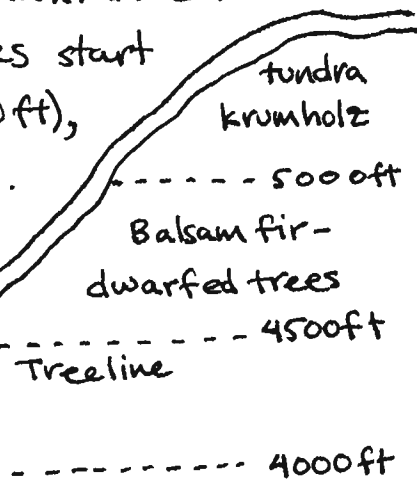 start
ft),
tundra
krumholz
5000ft
Balsam fir-
dwarfed trees
4500ft
Treeline
4000ft